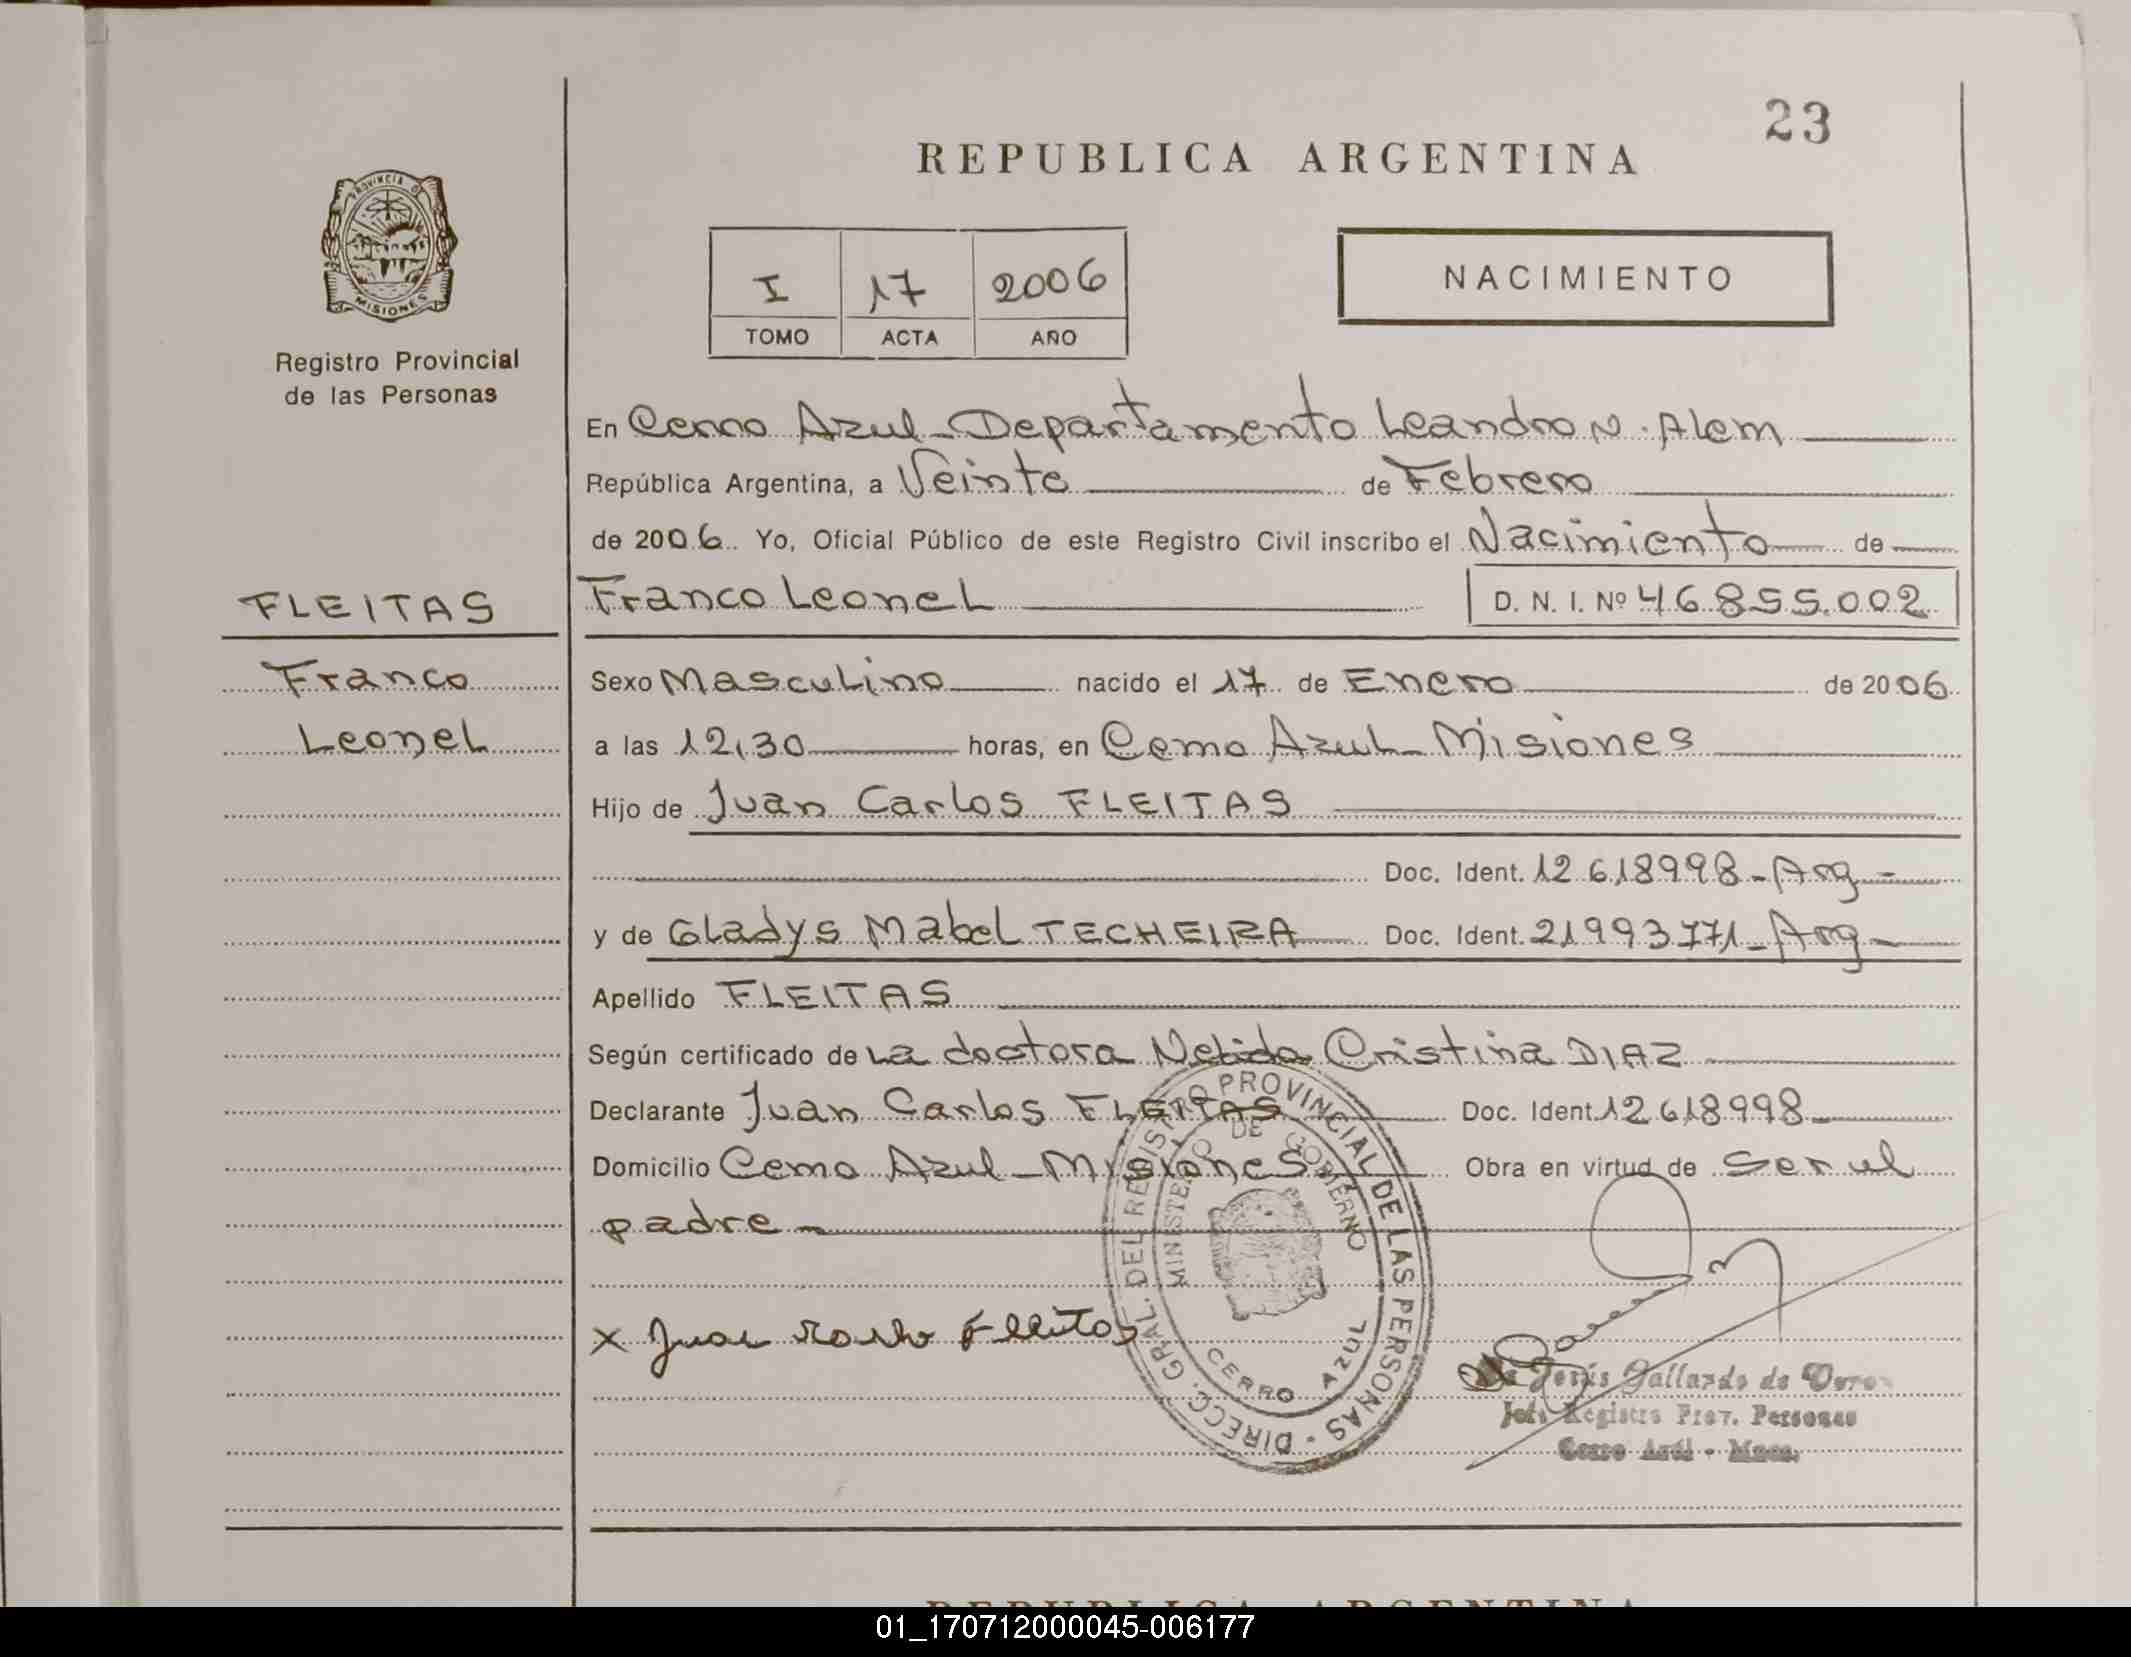 23
REPUBLICA ARGENTINA
PROVINCIA D
MISIONES
Registro Provincial
de las Personas
I 17 2006
TOMO ACTA AÑO
NACIMIENTO
En Cerro Azul - Departamento Leandro N. Alem
República Argentina, a Veinte de Febrero
de 2006. Yo, Oficial Público de este Registro Civil inscribo el Nacimiento de
FLEITAS
Franco Leonel D. N. I. Nº 46.855.002
Franco
Sexo Masculino nacido el 17 de Enero de 2006
Leonel
a las 12,30 horas, en Cerro Azul - Misiones
Hijo de Juan Carlos FLEITAS
Doc. Ident. 12.618998 - Arg -
y de Gladys Mabel TECHEIRA Doc. Ident. 21993771 - Arg -
Apellido FLEITAS
Según certificado de La doctora Nelida Cristina DIAZ
Declarante Juan Carlos FLEITAS Doc. Ident. 12.618998
Domicilio Cerro Azul - Misiones Obra en virtud de Ser el
padre -
DIRECC. GRAL. DEL REGISTRO PROVINCIAL DE LAS PERSONAS -
MINISTERIO DE GOBIERNO
CERRO AZUL
x Juan Carlos Fleitas
Jesús Gallardo de
Jefe Registro Prov. Personas
Cerro Azul - Mnes.
REPUBLICA ARGENTINA
01_170712000045-006177